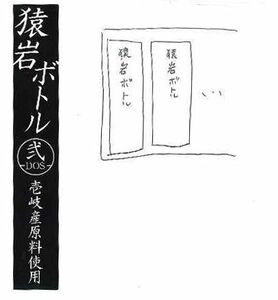 猿岩ボトル
弐
-DOS-
壱岐産原料使用
猿岩ボトル
猿岩ボトル